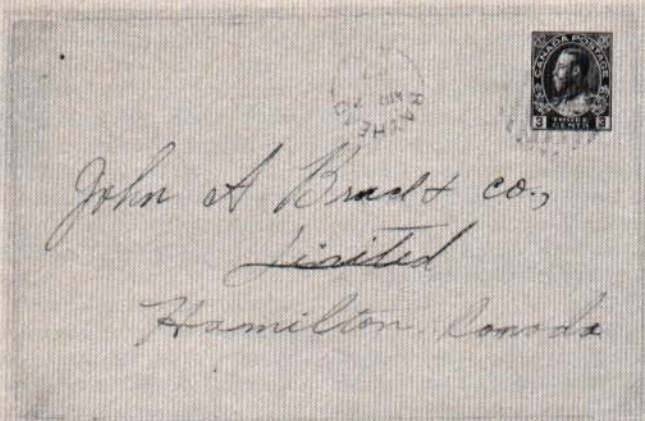 CANADA POSTAGE
3 THREE CENTS 3
John A Bradt co.,
Limited
Hamilton, Canada